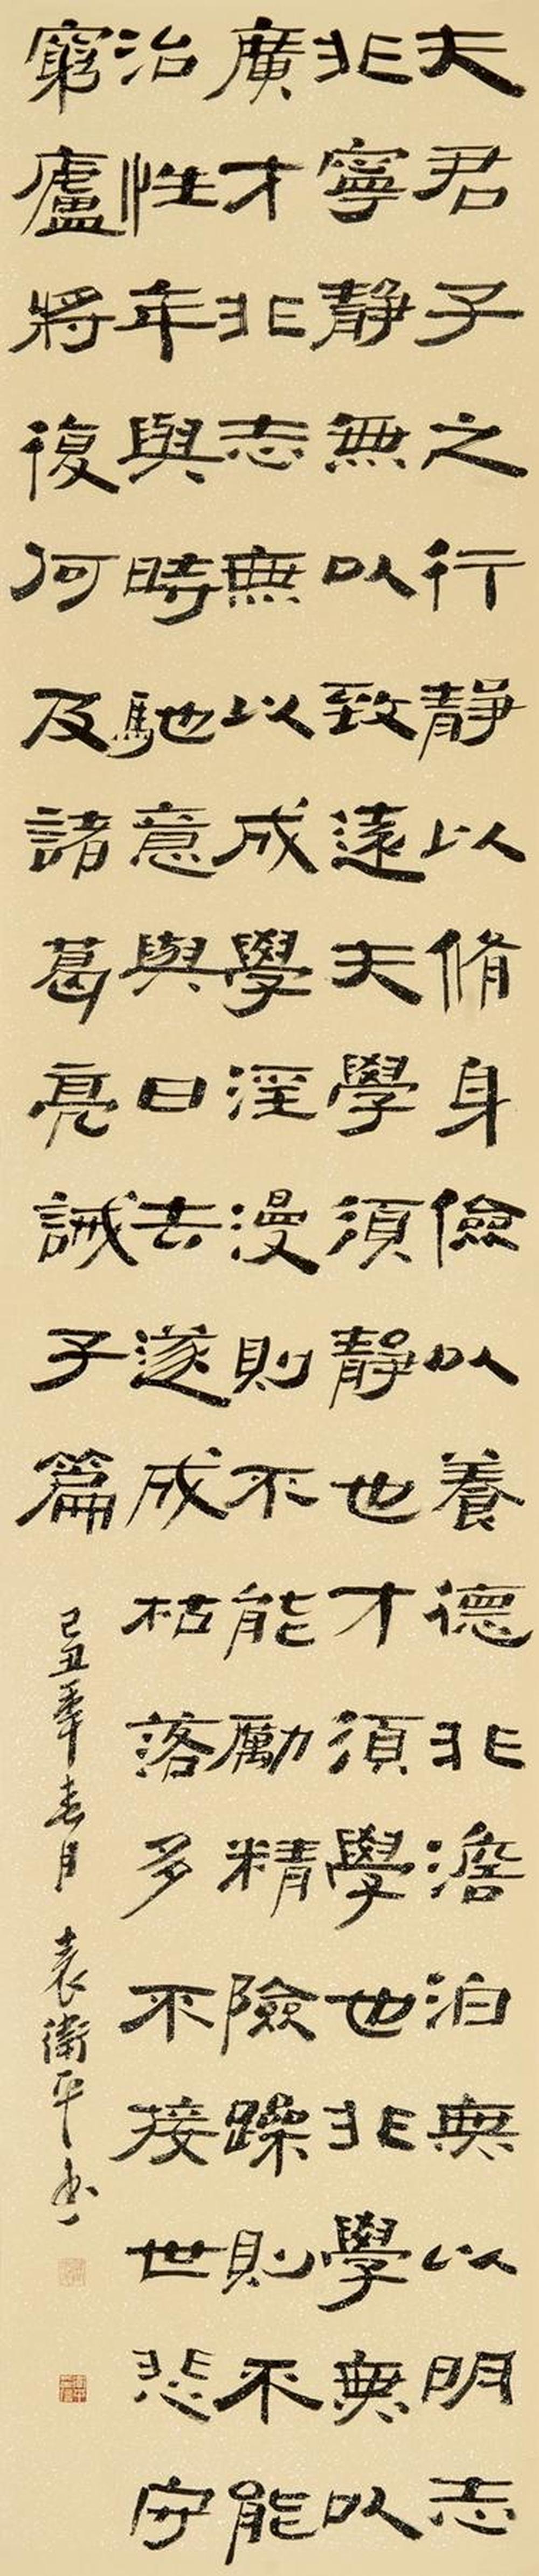 夫君子之行靜以脩身儉以養德非澹泊無以明志
非寧靜無以致遠夫學須靜也才須學也非學無以
廣才非志無以成學淫漫則不能勵精險躁則不能
治性年與時馳意與日去遂成枯落多不接世悲守
窮廬將復何及諸葛亮誡子篇
己丑年春月 袁衛平書